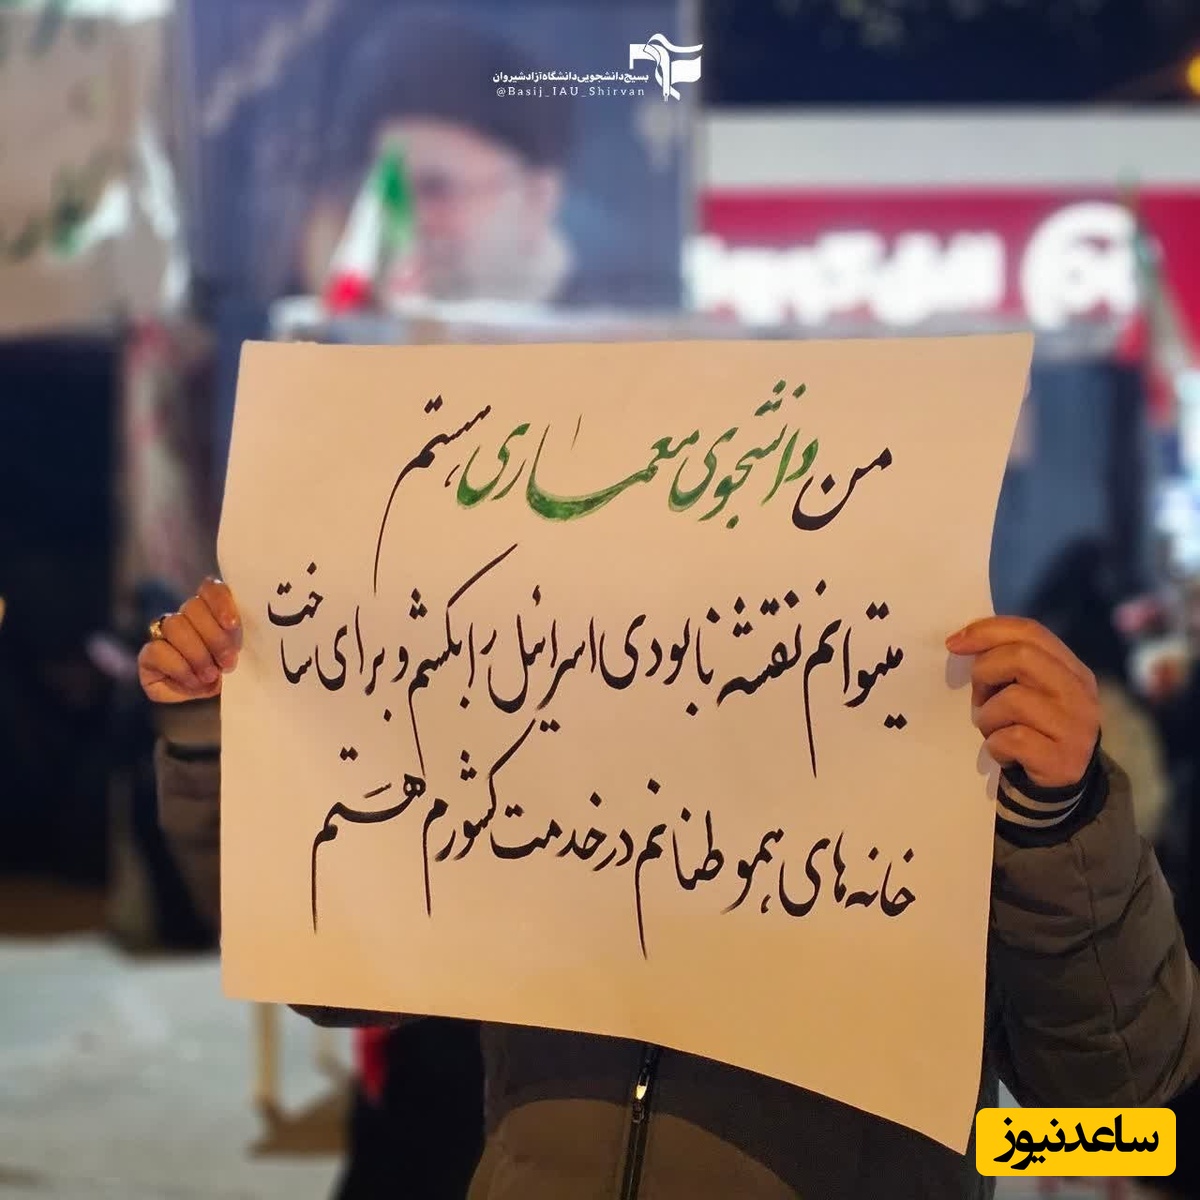 بسیج دانشجویی دانشگاه آزاد شیروان
@Basij_IAU_Shirvan
من دانشجوی معماری هستم
میتوانم نقشه نابودی اسرائیل را بکشم و برای ساخت
خانه های هموطنانم در خدمت کشورم هستم
ساعدنیوز